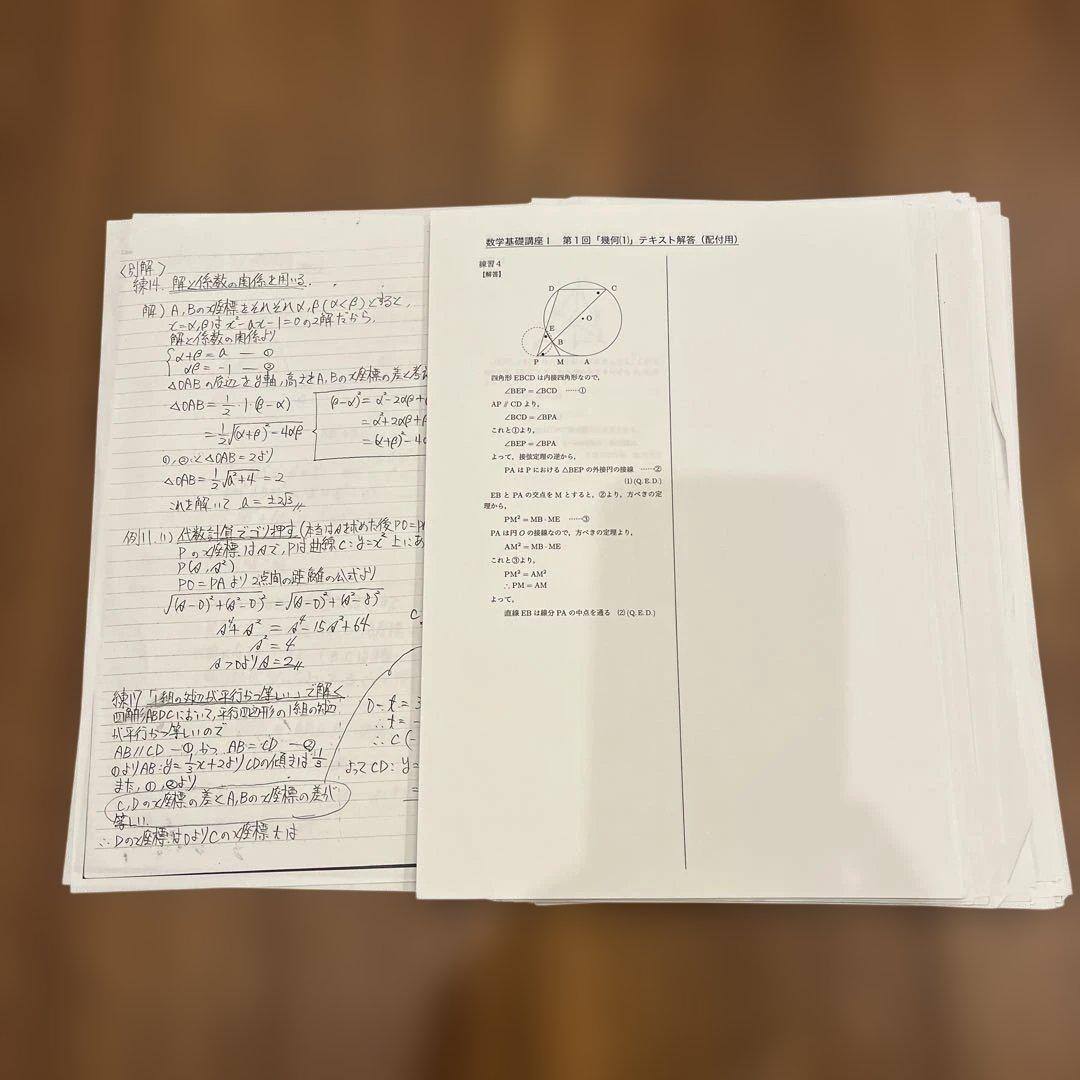 〈別解〉
練14. 解と係数の関係を用いる.
解) A, Bのx座標をそれぞれα, β (α<β) とすると,
x=α, βは x²-ax-1=0 の2解だから,
解と係数の関係より
α+β = a — ①
αβ = -1 — ②
△OABの底辺をy軸, 高さをA, Bのx座標の差と
△OAB = 1/2・1・(β-α)
(β-α)² = α²-2αβ+
= α²+2αβ+β
= 1/2√(α+β)²-4αβ
= (α+β)²-4α
①, ②と△OAB=2より
△OAB = 1/2√a²+4 = 2
これを解いて a = ±2√3
例11.(1) 代数計算でゴリ押す (本当は を求めた後PO=P
Pのx座標はsで, Pは曲線C: y=x² 上にあ
P(s, s²)
PO=PAより2点間の距離の公式より
√(s-0)²+(s²-0)² = √(s-0)²+(s²-8)²
s⁴+s² = s⁴-15s²+64
s² = 4
s>0より s=2
練17 「1組の対辺が平行かつ等しい」で解く
四角形ABDCにおいて, 平行四辺形の1組の対辺
が平行かつ等しいので
AB//CD —① かつ AB=CD —②
①よりAB: y=1/3x+2よりCDの傾きは1/3
また, ①, ②より
C, Dのx座標の差とA, Bのx座標の差が
等しい.
∴Dのx座標は0よりCのx座標tは
0-t=3
∴t=-
∴C(-
よってCD: y=
数学基礎講座Ⅰ 第1回「幾何(1)」テキスト解答（配付用）
練習4
【解答】
D C
O
E
B
P M A
四角形 EBCD は内接四角形なので，
∠BEP = ∠BCD ……①
AP // CD より，
∠BCD = ∠BPA
これと①より，
∠BEP = ∠BPA
よって，接弦定理の逆から，
PA は P における △BEP の外接円の接線 ……②
(1) (Q.E.D.)
EB と PA の交点を M とすると，②より，方べきの定
理から，
PM² = MB・ME ……③
PA は円 O の接線なので，方べきの定理より，
AM² = MB・ME
これと③より，
PM² = AM²
∴ PM = AM
よって，
直線 EB は線分 PA の中点を通る (2) (Q.E.D.)